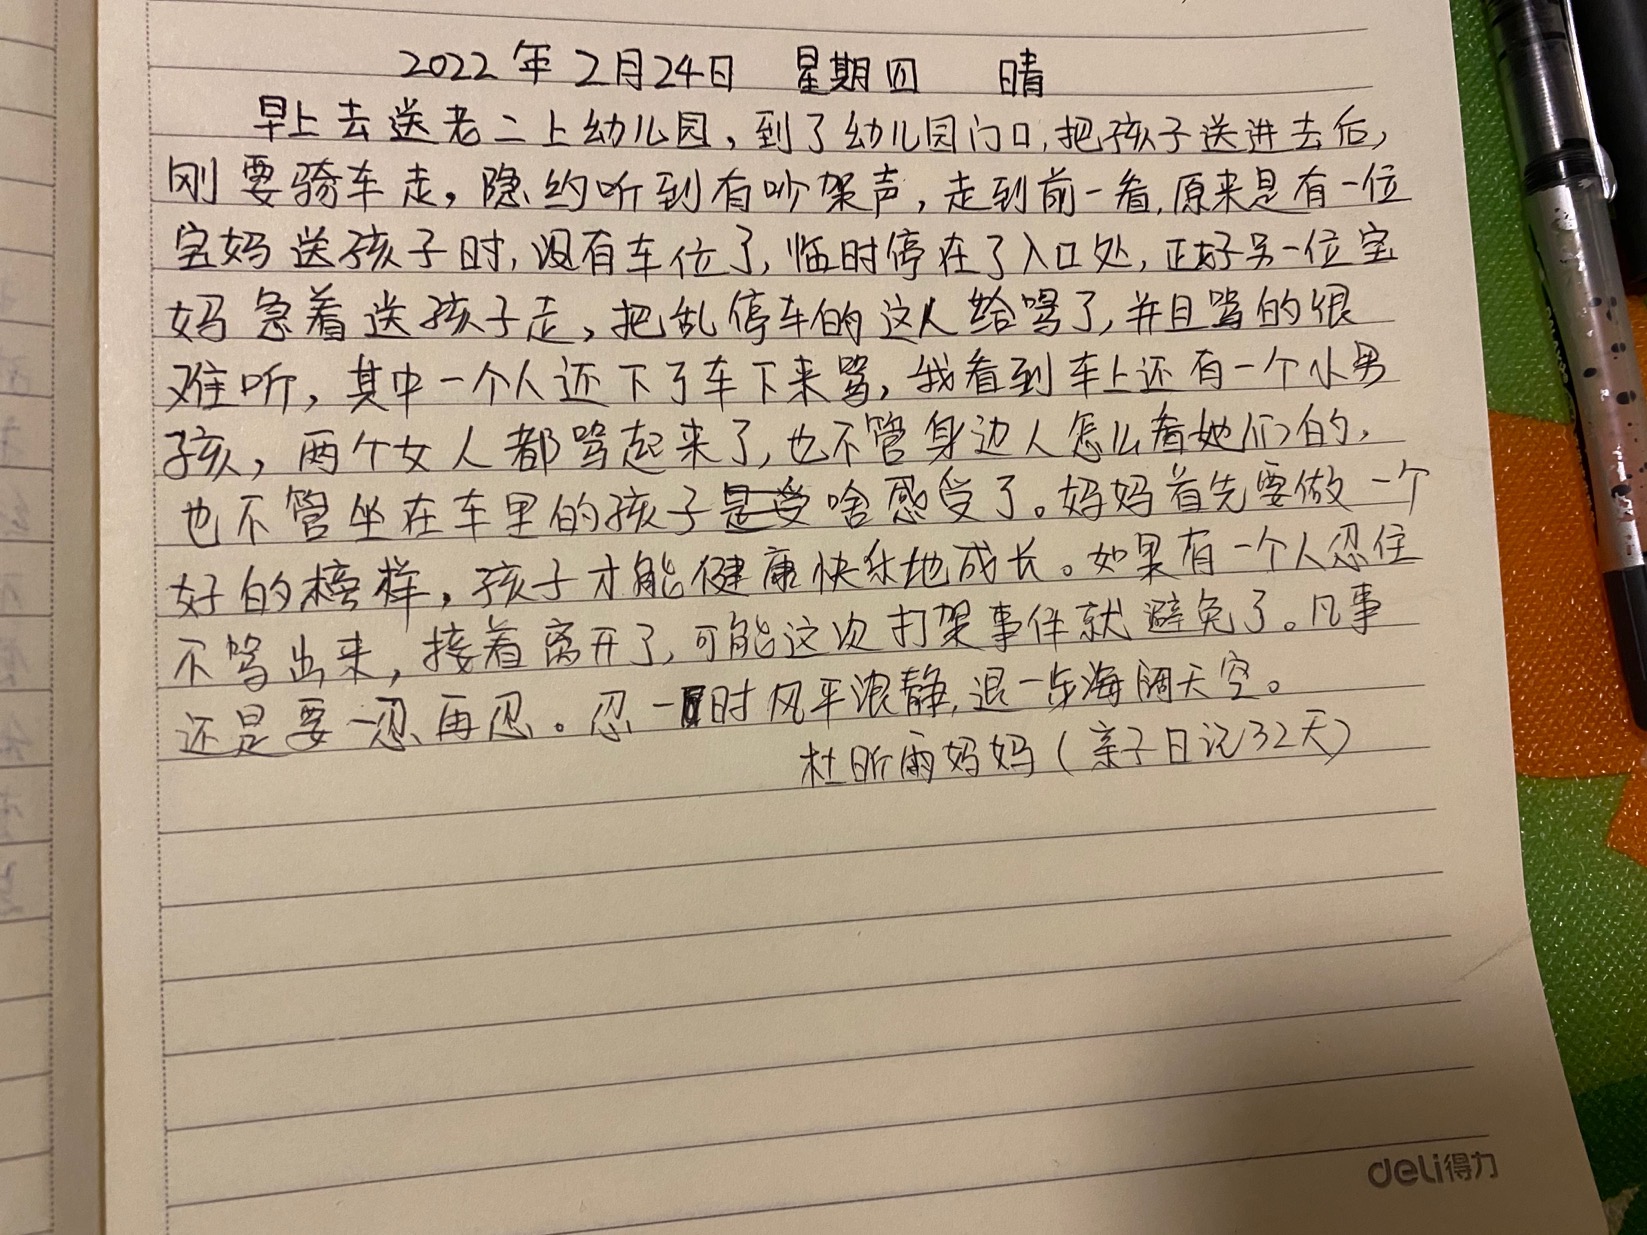 2022年2月24日 星期四 晴
早上去送老二上幼儿园,到了幼儿园门口,把孩子送进去后,
刚要骑车走,隐约听到有吵架声,走到前一看,原来是有一位
宝妈送孩子时,没有车位了,临时停在了入口处,正好另一位宝
妈急着送孩子走,把乱停车的这人给骂了,并且骂的很
难听,其中一个人还下了车下来骂,我看到车上还有一个小男
孩,两个女人都骂起来了,也不管身边人怎么看她们的,
也不管坐在车里的孩子是受啥感受了。妈妈首先要做一个
好的榜样,孩子才能健康快乐地成长。如果有一个人忍住
不骂出来,接着离开了,可能这次打架事件就避免了。凡事
还是要一忍再忍。忍一时风平浪静,退一步海阔天空。
杜昕雨妈妈(亲子日记32天)
deli得力